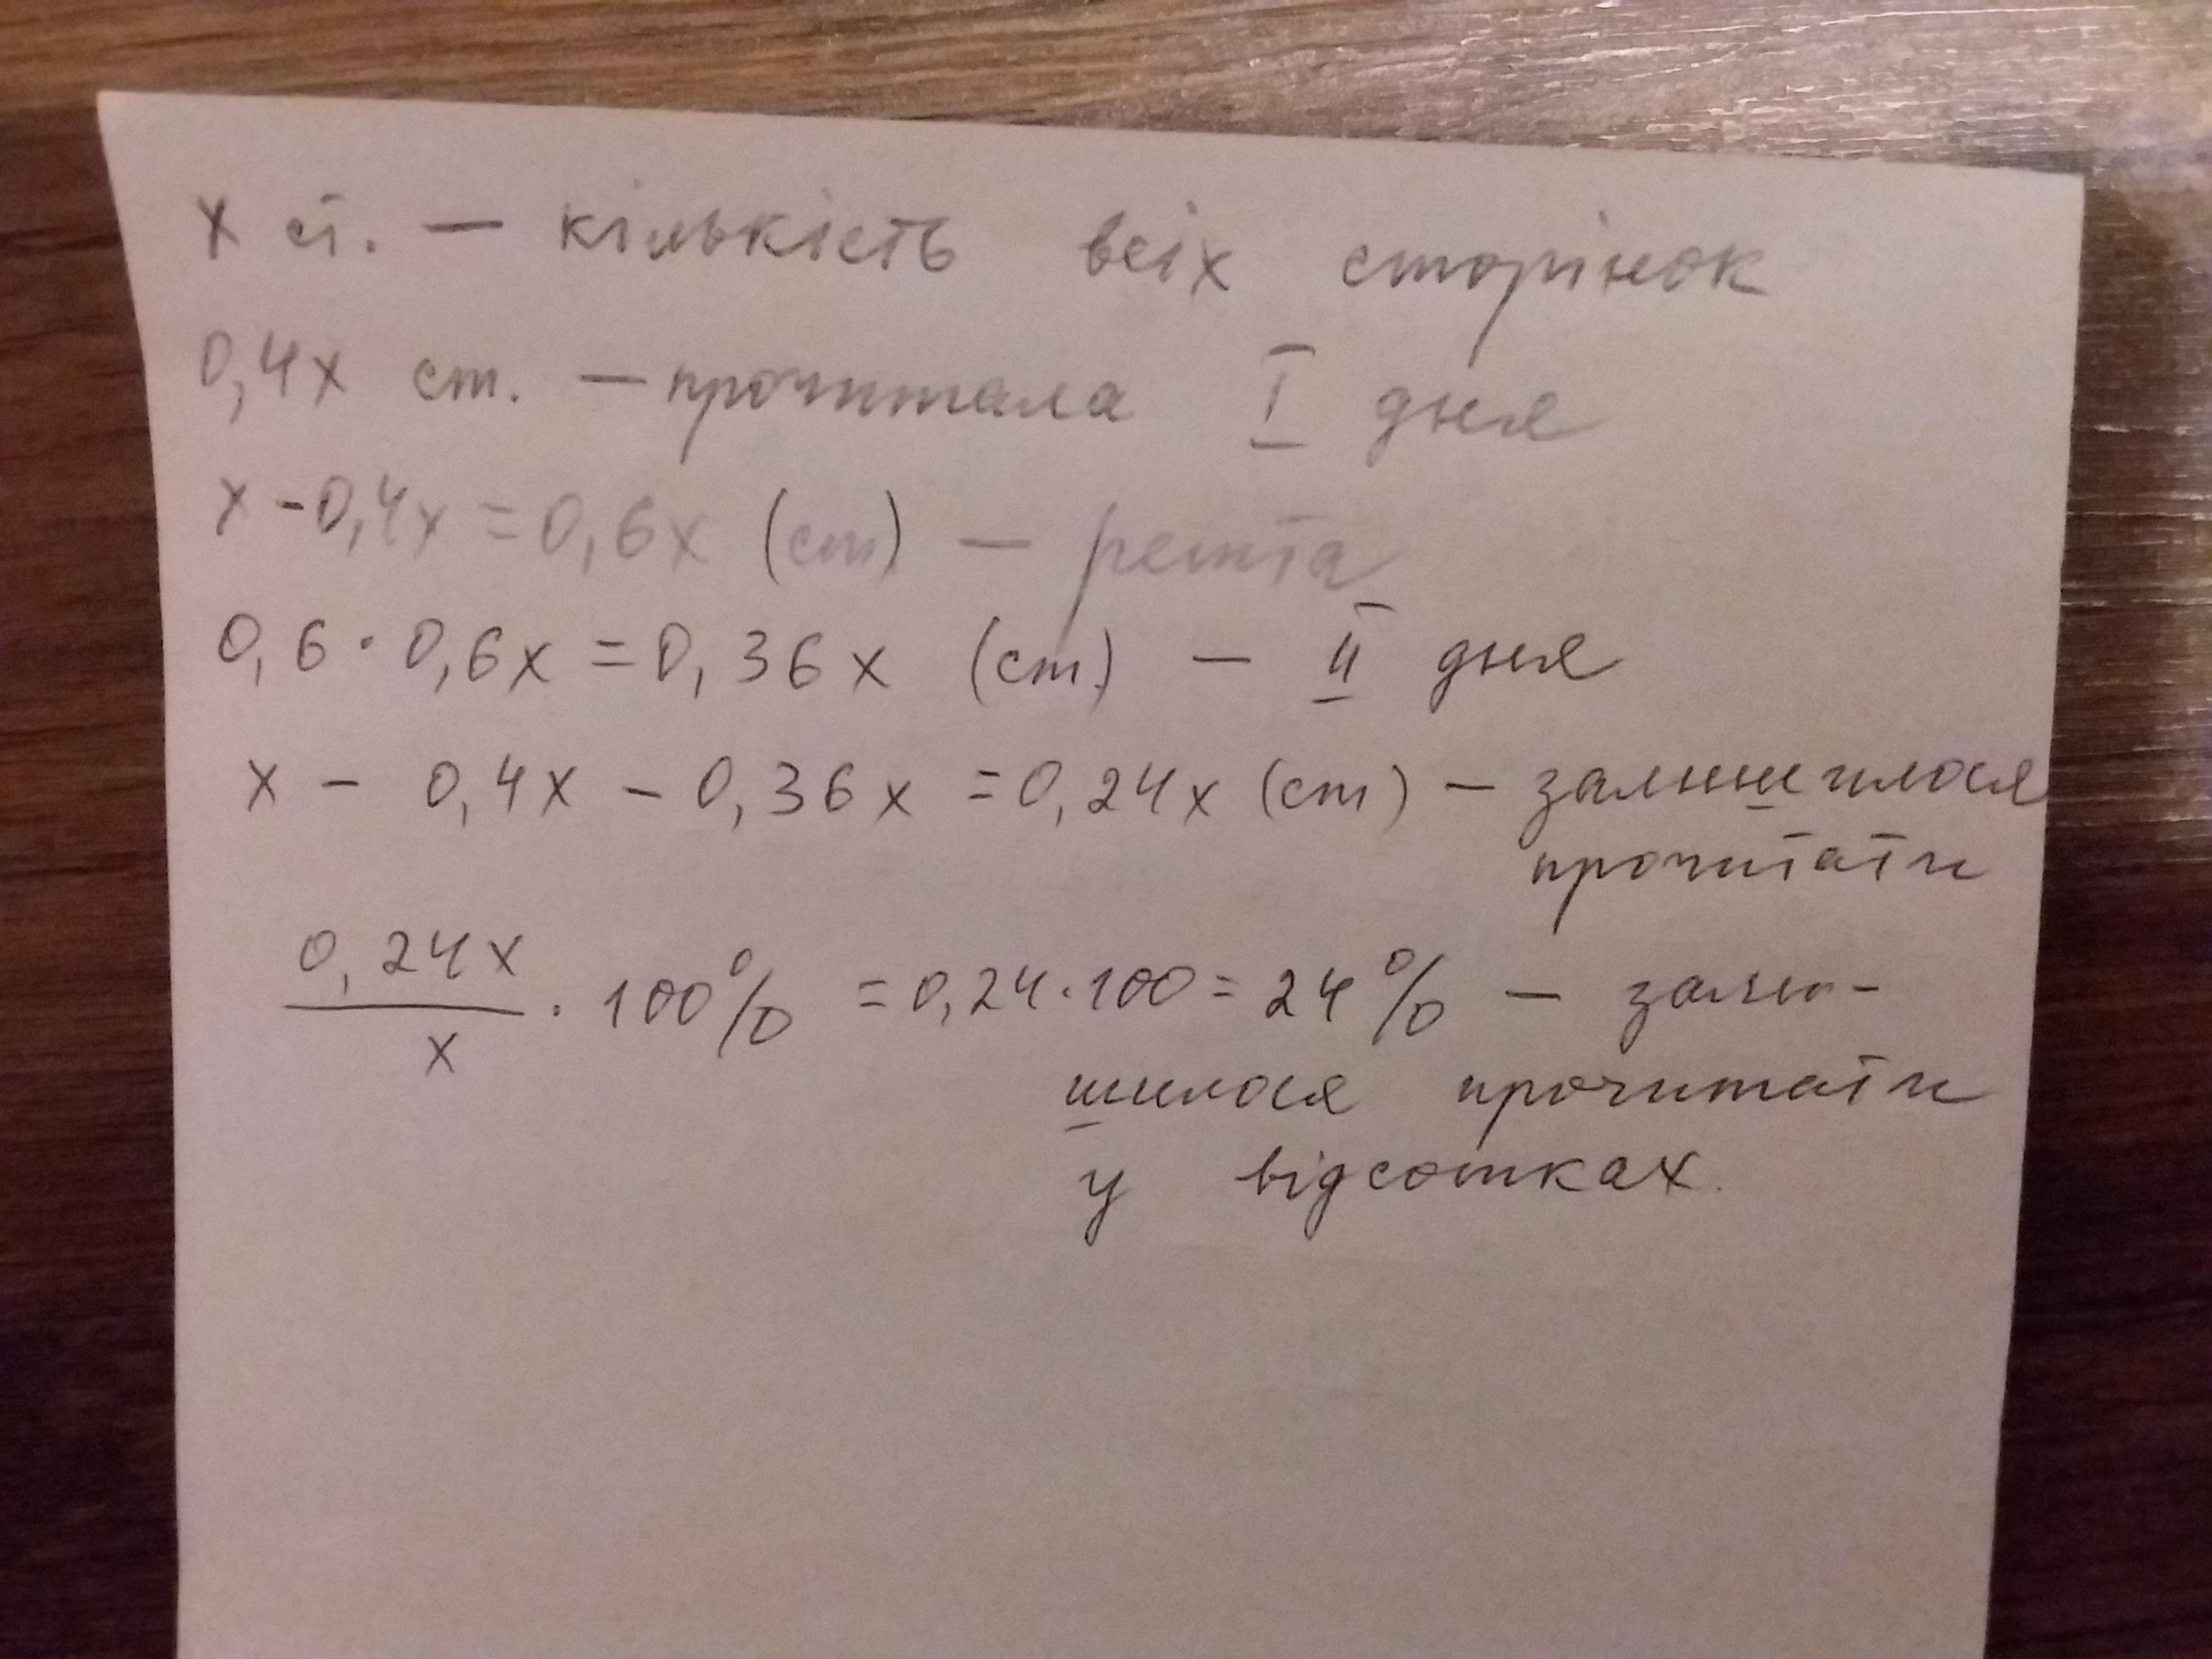 x ст. — кількість всіх сторінок
0,4x ст. — прочитала I дня
x - 0,4x = 0,6x (ст) — решта
0,6 · 0,6x = 0,36x (ст.) — II дня
x - 0,4x - 0,36x = 0,24x (ст) — залишилося
прочитати
0,24x/x · 100% = 0,24·100 = 24% — зали-
шилося прочитати
у відсотках.